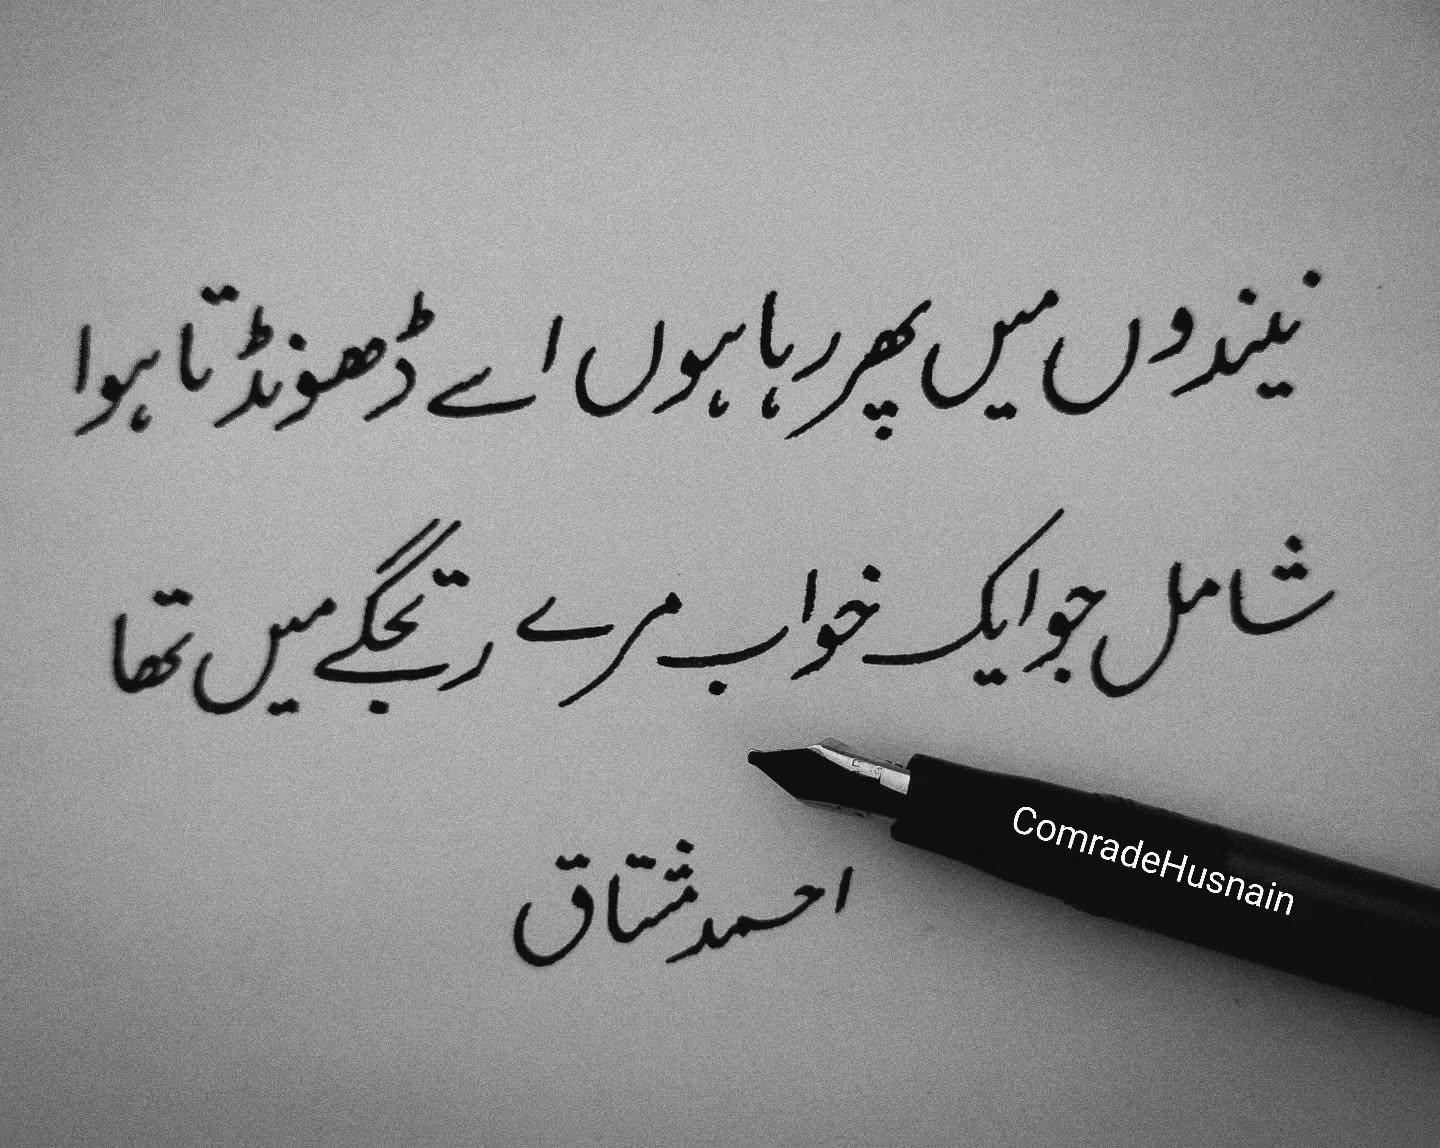 نیندوں میں پھر رہا ہوں اسے ڈھونڈتا ہوا
شامل جو ایک خواب مرے رتجگے میں تھا
احمد مشتاق
ComradeHusnain